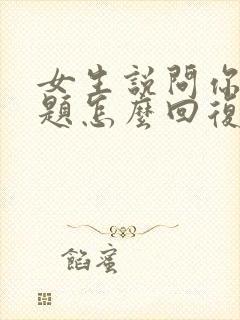 女生說問你
題怎麼回復
餡蜜